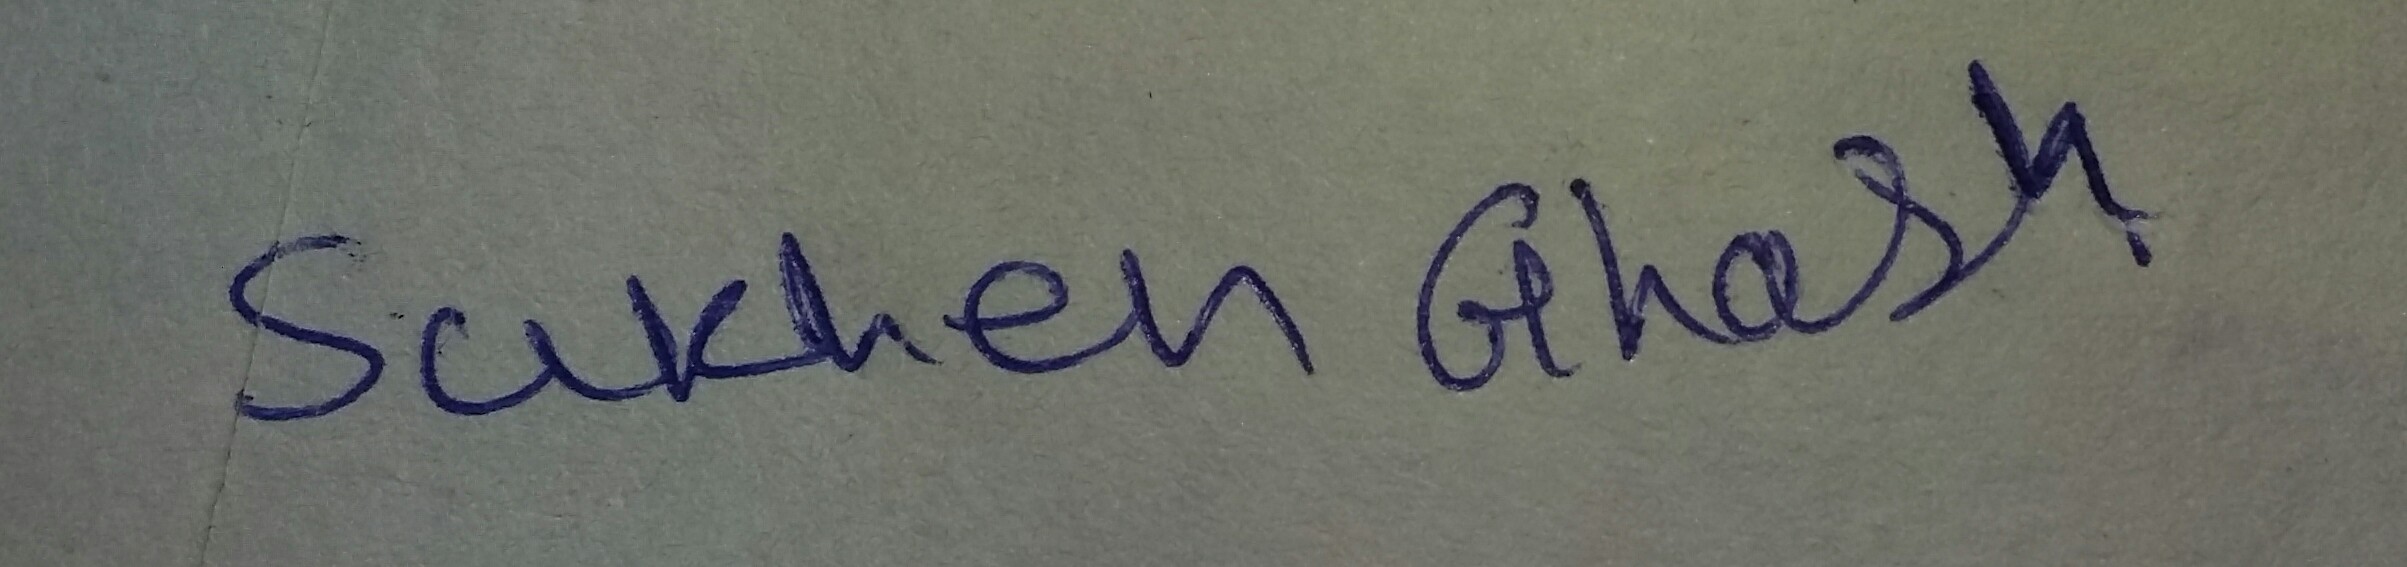 Sukhen Ghosh